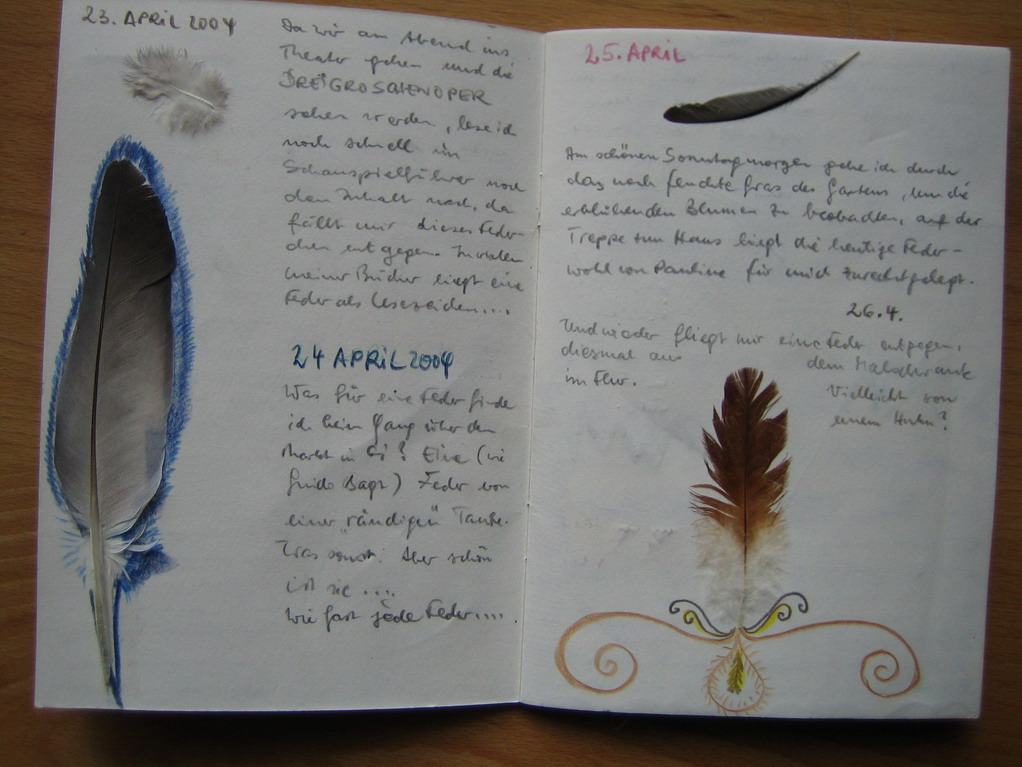 23. APRIL 2004
Da wir am Abend ins
Theater gehen und die
DREIGROSCHENOPER
sehen werden, lese ich
noch schnell im
Schauspielführer noch
den Inhalt nach, da
fällt mir dieses Feder-
chen entgegen. In vielen
meiner Bücher liegt eine
Feder als Lesezeichen....
24 APRIL 2004
Was für eine Feder finde
ich beim Gang über den
Markt in ? Eine (wie
Guido sagt) Feder von
einer "räudigen" Taube.
Was sonst! Aber schön
ist sie ....
wie fast jede Feder....
25. APRIL
Am schönen Sonntagmorgen gehe ich durch
das noch feuchte Gras des Gartens, um die
erblühenden Blumen zu beobachten, auf der
Treppe zum Haus liegt die heutige Feder -
wohl von Pauline für mich zurechtgelegt.
26.4.
Und wieder fliegt mir eine Feder entgegen,
diesmal aus dem Malschrank
im Flur. Vielleicht von
einem Huhn?